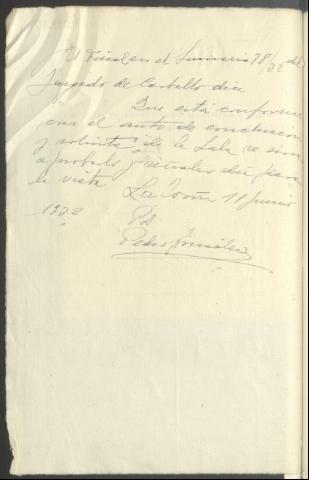 El Fiscal en el sumario 78/22 del
Juzgado de Carballo dice
Que está conforme
con el auto de conclusion
y solicita de la Sala se sirva
aprobarlo y señalar dia para
la vista
La Coruña 11 Junio
1922
Pedro González